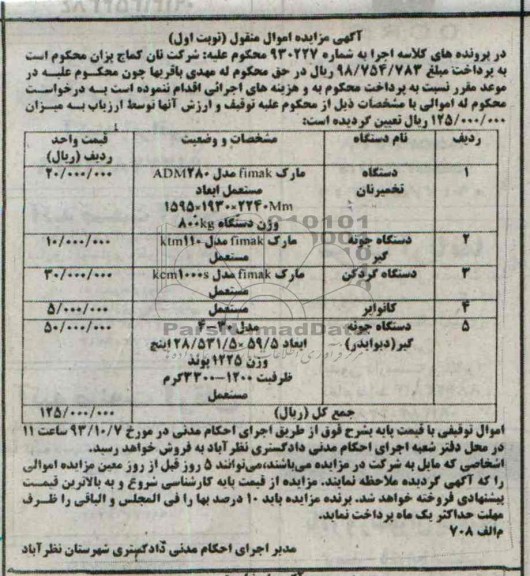 آگهی مزایده اموال منقول (نوبت اول)
در پرونده های کلاسه اجرا به شماره ۹۳۰۲۲۷ محکوم علیه: شرکت نان کماج پزان محکوم است
به پرداخت مبلغ ۹۸/۷۵۴/۷۸۳ ریال در حق محکوم له مهدی باقریها چون محکوم علیه در
موعد مقرر نسبت به پرداخت محکوم به و هزینه های اجرائی اقدام ننموده است به درخواست
محکوم له اموالی با مشخصات ذیل از محکوم علیه توقیف و ارزش آنها توسط ارزیاب به میزان
۱۲۵/۰۰۰/۰۰۰ ریال تعیین گردیده است:
ردیف نام دستگاه مشخصات و وضعیت قیمت واحد ردیف (ریال)
۱ دستگاه تخمیرنان مارک fimak مدل ADM۲۸۰ ۲۰/۰۰۰/۰۰۰
مستعمل ابعاد
۱۵۹۵×۱۹۳۰×۲۲۴۰Mm
وزن دستگاه ۸۰۰kg
۲ دستگاه چونه گیر مارک fimak مدل ktm۱۱۰ ۱۰/۰۰۰/۰۰۰
مستعمل
۳ دستگاه گردکن مارک fimak مدل kcm۱۰۰۰s ۳۰/۰۰۰/۰۰۰
مستعمل
۴ کانوایر مستعمل ۵/۰۰۰/۰۰۰
۵ دستگاه چونه گیر(دیوایدر) مدل ۳۰-۴ ۵۰/۰۰۰/۰۰۰
ابعاد ۵۹/۵×۲۸/۵۳۱/۵ اینچ
وزن ۱۲۲۵ پوند
ظرفیت ۱۲۰۰-۳۳۰۰گرم
مستعمل
جمع کل (ریال) ۱۲۵/۰۰۰/۰۰۰
اموال توقیفی با قیمت پایه بشرح فوق از طریق اجرای احکام مدنی در مورخ ۹۳/۱۰/۷ ساعت ۱۱
در محل دفتر شعبه اجرای احکام مدنی دادگستری نظرآباد به فروش خواهد رسید.
اشخاصی که مایل به شرکت در مزایده می‌باشند،می‌توانند ۵ روز قبل از روز معین مزایده اموالی
را که آگهی گردیده ملاحظه نمایند. مزایده از قیمت پایه کارشناسی شروع و به بالاترین قیمت
پیشنهادی فروخته خواهد شد. برنده مزایده باید ۱۰ درصد بها را فی المجلس و الباقی را ظرف
مهلت حداکثر یک ماه پرداخت نماید.
م‌الف ۷۰۸
مدیر اجرای احکام مدنی دادگستری شهرستان نظرآباد
ParsNamadData